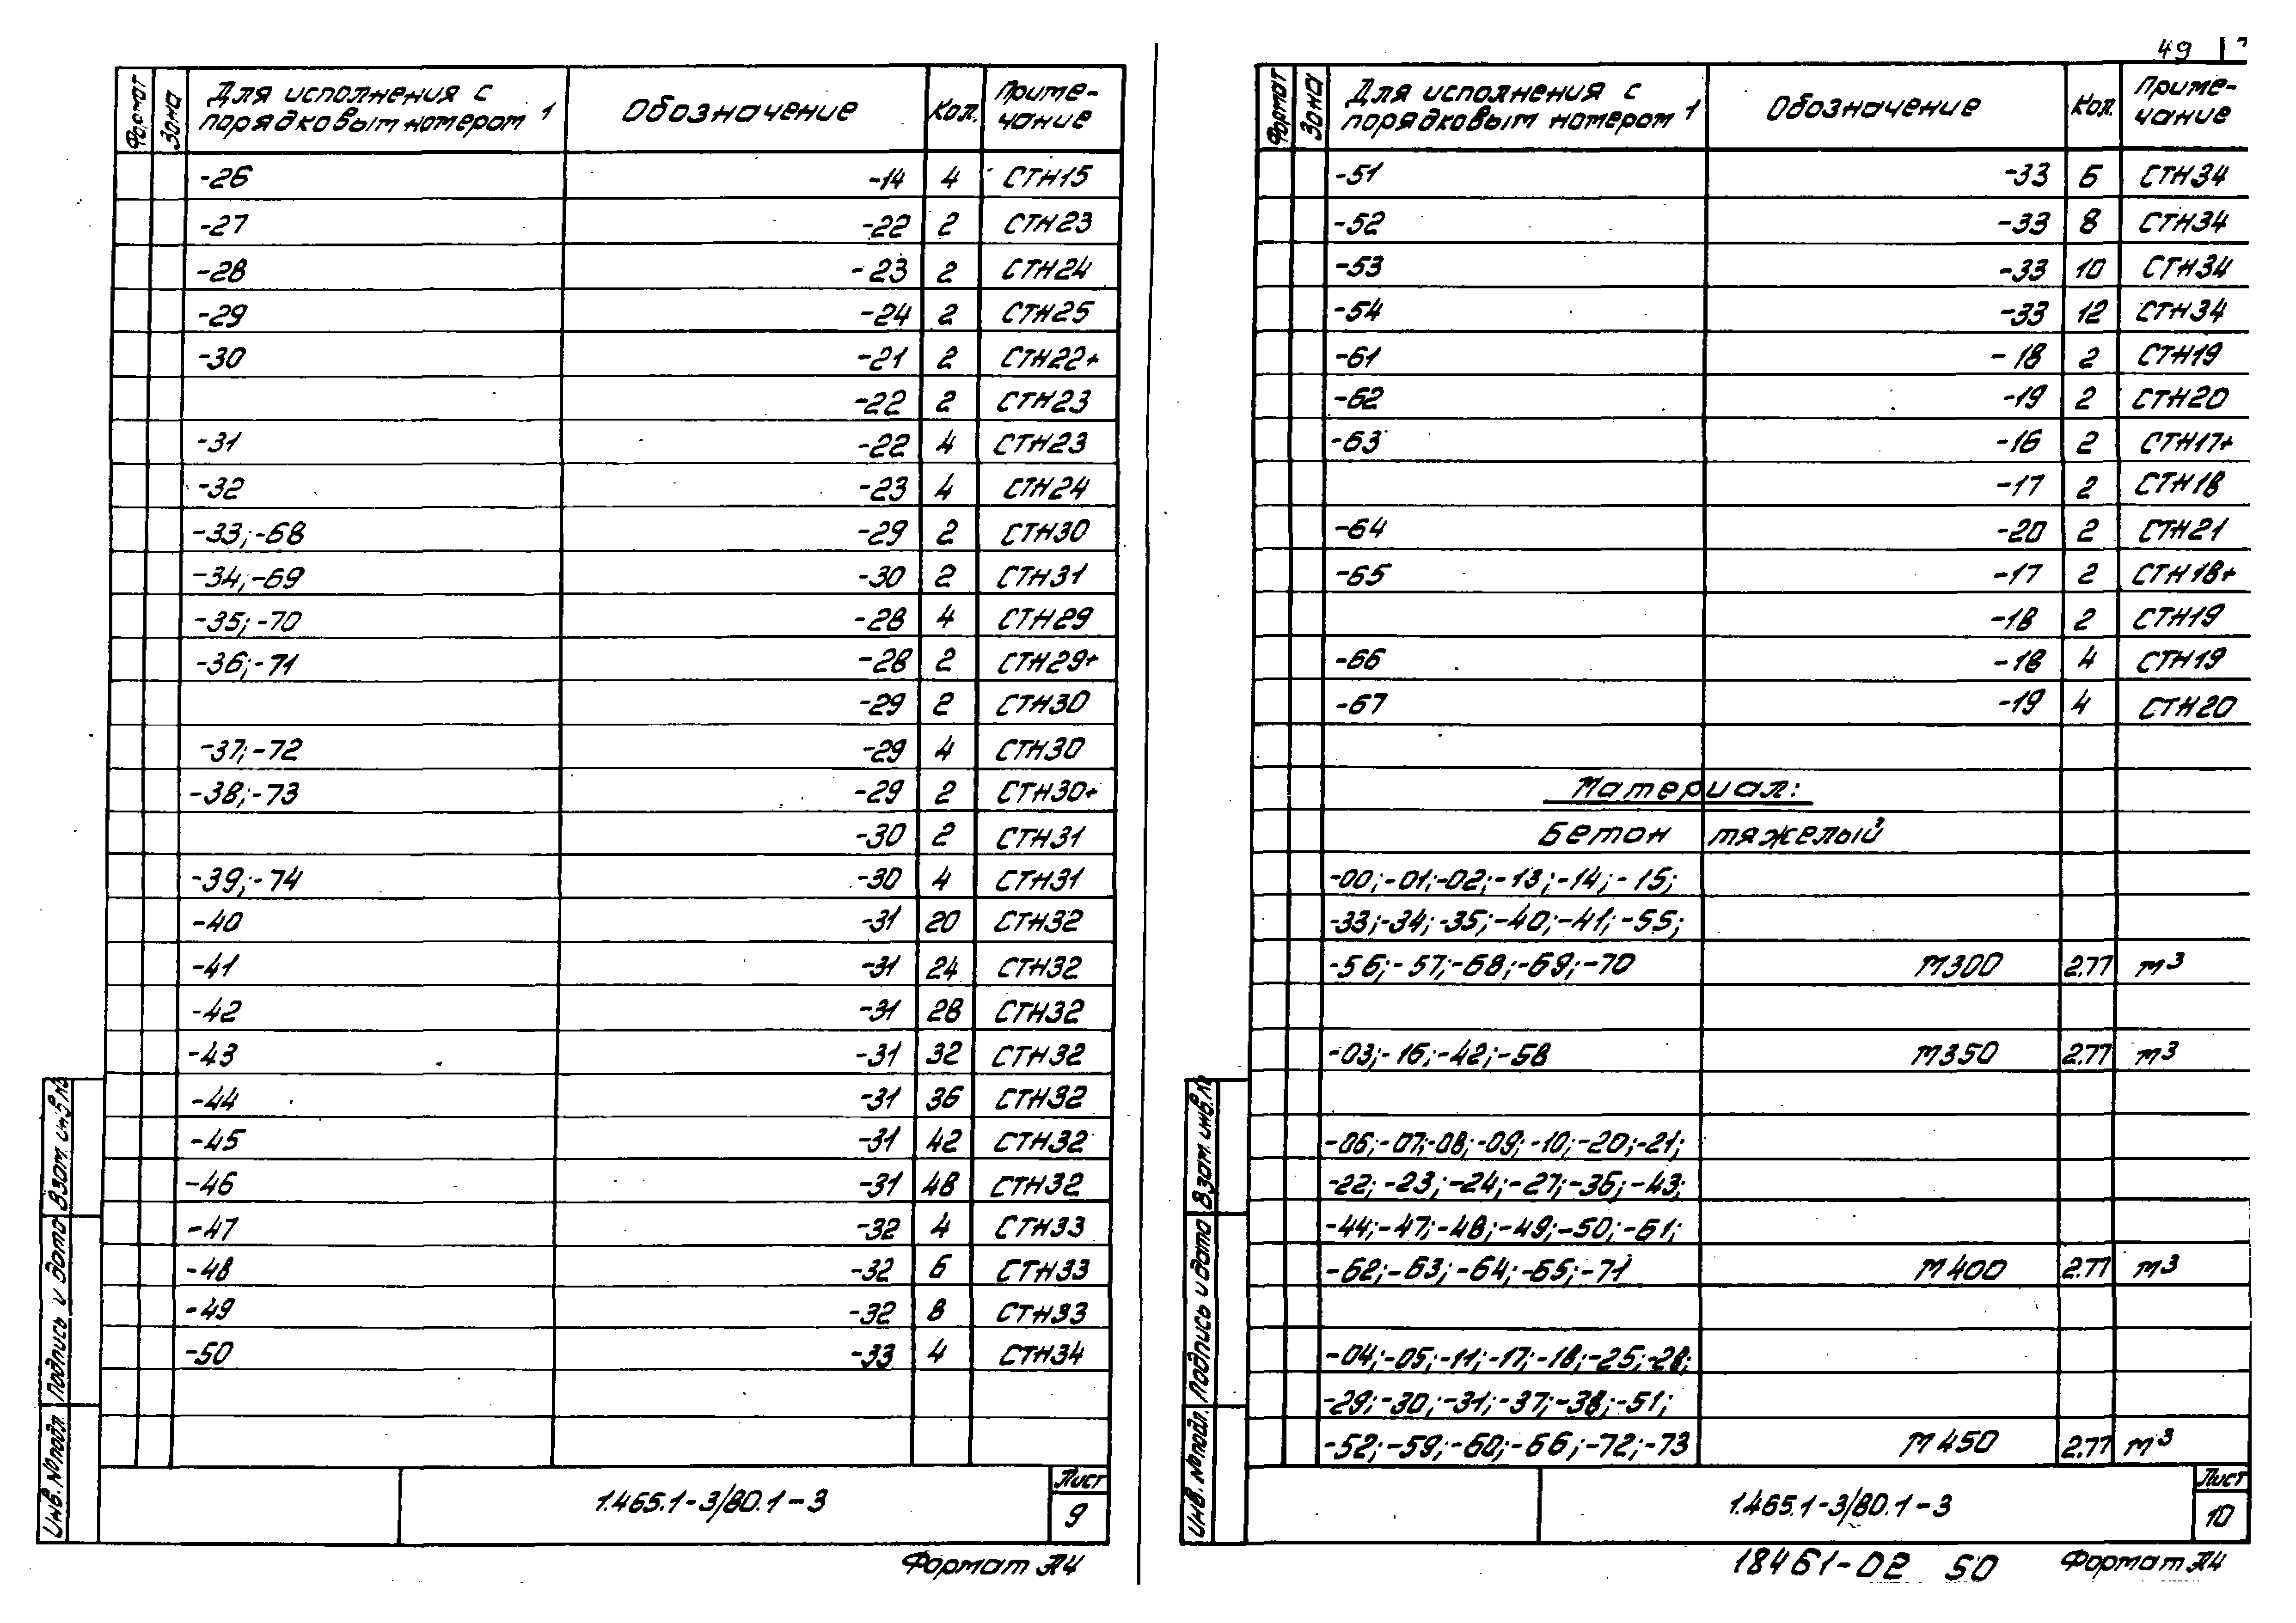 Формат Зона Для исполнения с порядковым номером 1 Обозначение Кол. Приме-чание
-26 -14 4 СТН15
-27 -22 2 СТН23
-28 -23 2 СТН24
-29 -24 2 СТН25
-30 -21 2 СТН22+
-22 2 СТН23
-31 -22 4 СТН23
-32 -23 4 СТН24
-33;-68 -29 2 СТН30
-34;-69 -30 2 СТН31
-35;-70 -28 4 СТН29
-36;-71 -28 2 СТН29+
-29 2 СТН30
-37;-72 -29 4 СТН30
-38;-73 -29 2 СТН30+
-30 2 СТН31
-39;-74 -30 4 СТН31
-40 -31 20 СТН32
-41 -31 24 СТН32
-42 -31 28 СТН32
-43 -31 32 СТН32
-44 -31 36 СТН32
-45 -31 42 СТН32
-46 -31 48 СТН32
-47 -32 4 СТН33
-48 -32 6 СТН33
-49 -32 8 СТН33
-50 -33 4 СТН34
Инв. № подл. Подпись и дата Взам. инв. №
1.465.1-3/80.1-3
Лист
9
Формат А4
49
Формат Зона Для исполнения с порядковым номером 1 Обозначение Кол. Приме-чание
-51 -33 6 СТН34
-52 -33 8 СТН34
-53 -33 10 СТН34
-54 -33 12 СТН34
-61 -18 2 СТН19
-62 -19 2 СТН20
-63 -16 2 СТН17+
-17 2 СТН18
-64 -20 2 СТН21
-65 -17 2 СТН18+
-18 2 СТН19
-66 -18 4 СТН19
-67 -19 4 СТН20
Материал:
Бетон тяжелый
-00;-01;-02;-13;-14;-15;
-33;-34;-35;-40;-41;-55;
-56;-57;-68;-69;-70 М300 2.77 м³
-03;-16;-42;-58 М350 2.77 м³
-06;-07;-08;-09;-10;-20;-21;
-22;-23;-24;-27;-36;-43;
-44;-47;-48;-49;-50;-61;
-62;-63;-64;-65;-71 М400 2.77 м³
-04;-05;-11;-17;-18;-25;-28;
-29;-30;-31;-37;-38;-51;
-52;-59;-60;-66;-72;-73 М450 2.77 м³
Инв. № подл. Подпись и дата Взам. инв. №
1.465.1-3/80.1-3
Лист
10
18461-02 50 Формат А4